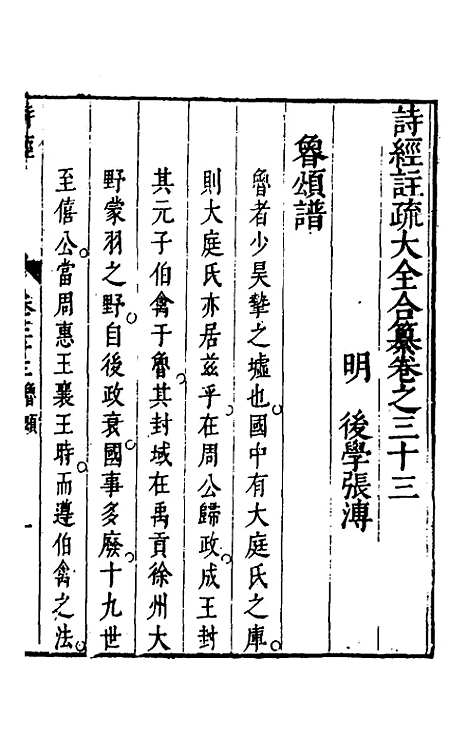 詩經註疏大全合纂卷之三十三
明 後學張溥
魯頌譜
魯者少昊摯之墟也。國中有大庭氏之庫。
則大庭氏亦居茲乎。在周公歸政。成王封
其元子伯禽于魯。其封域在禹貢徐州大
野蒙羽之野。自後政衰。國事多廢。十九世
至僖公。當周惠王襄王時。而遵伯禽之法。
詩經 卷三十三 魯頌 一